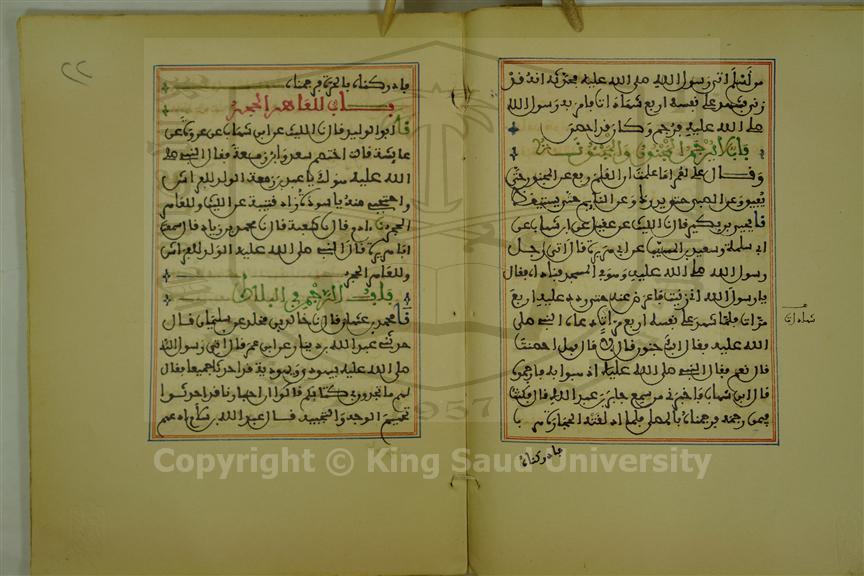 من اسلم اتى رسول الله صلى الله عليه فحدثه انه قد
زنى فشهد على نفسه اربع شهادات فامر به رسول الله
صلى الله عليه فرجم وكان قد احصن
باب لا يرجم المجنون والمجنونة
وقال على لعمر اما علمت ان القلم رفع عن المجنون حتى
يفيق وعن الصبى حتى يدرك وعن النايم حتى يستيقظ
نا يحيى بن بكير قال نا الليث عن عقيل عن ابن شهاب عن
ابى سلمة وسعيد بن المسيب عن ابى هريرة قال اتى رجل
رسول الله صلى الله عليه وهو فى المسجد فناداه فقال
يا رسول الله انى زنيت فاعرض عنه حتى ردد عليه اربع
مرات فلما شهد على نفسه اربع مرات دعاه النبى صلى
الله عليه فقال ابك جنون قال لا قال فهل احصنت
قال نعم فقال النبى صلى الله عليه اذهبوا به فارجموه
قال ابن شهاب فاخبرنى من سمع جابر بن عبد الله قال فكنت
فيمن رجمه فرجمناه بالمصلى فلما اذلقته الحجارة هرب
شهادات
فادركناه
٢٢
فادركناه بالحرة فرجمناه
باب للعاهر الحجر
نا ابو الوليد قال نا الليث عن ابن شهاب عن عروة عن
عايشة قالت اختصم سعد وابن زمعة فقال النبى صلى
الله عليه هو لك يا عبد بن زمعة الولد للفراش
واحتجبى منه يا سودة زاد قتيبة عن الليث وللعاهر
الحجر نا ادم قال نا شعبة قال نا محمد بن زياد قال سمعت
ابا هريرة قال قال النبى صلى الله عليه الولد للفراش
وللعاهر الحجر
باب الرجم فى البلاط
نا محمد بن عثمان قال نا خالد بن مخلد عن سليمان قال
حدثنى عبد الله بن دينار عن ابن عمر قال اتى رسول الله
صلى الله عليه بيهودى ويهودية قد احدثا جميعا فقال
لهم ما تجدون فى كتابكم قالوا ان احبارنا قد احدثوا
تحميم الوجه والتجبيه قال عبد الله بن سلام ادعهم
1957
Copyright © King Saud University